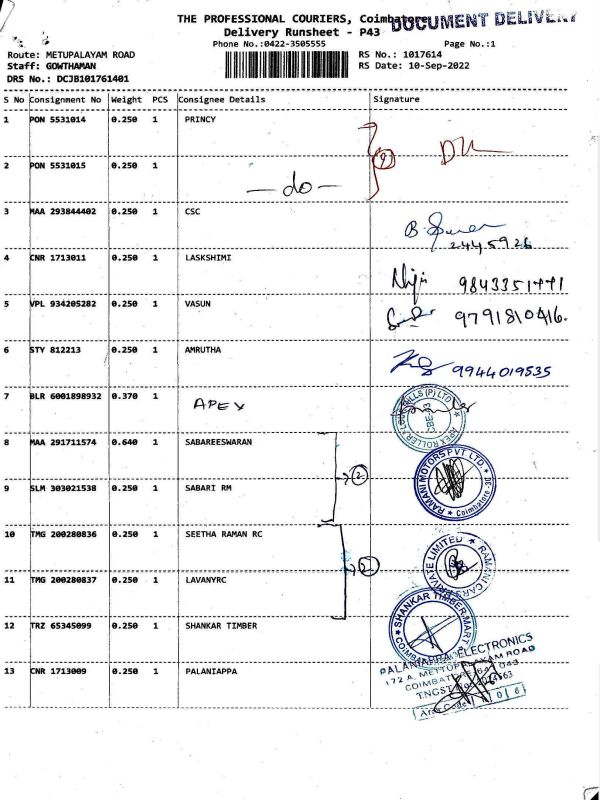 THE PROFESSIONAL COURIERS, Coimbatore
DOCUMENT DELIVERY
Delivery Runsheet - P43
Phone No.:0422-3505555 Page No.:1
Route: METUPALAYAM ROAD RS No.: 1017614
Staff: GOWTHAMAN RS Date: 10-Sep-2022
DRS No.: DCJB101761401
S No Consignment No Weight PCS Consignee Details Signature
1 PON 5531014 0.250 1 PRINCY
2 PON 5531015 0.250 1 — do —
3 MAA 293844402 0.250 1 CSC
2445926
4 CNR 1713011 0.250 1 LASKSHIMI
5 VPL 934205282 0.250 1 VASUN 9791810416.
6 STY 812213 0.250 1 AMRUTHA 9944019535
7 BLR 6001898932 0.370 1 APEX
APEX ROLLER FLOUR MILLS (P) LTD
8 MAA 291711574 0.640 1 SABAREESWARAN
RAMANI MOTORS PVT LTD. Coimbatore
2
9 SLM 303021538 0.250 1 SABARI RM
10 TMG 200280836 0.250 1 SEETHA RAMAN RC
RAMANI CARS PRIVATE LIMITED
11 TMG 200280837 0.250 1 LAVANYRC
12 TRZ 65345099 0.250 1 SHANKAR TIMBER
SHANKAR TIMBER MART
13 CNR 1713009 0.250 1 PALANIAPPA
PALANIAPPA ELECTRONICS
172 A, METTUPALAYAM ROAD
COIMBATORE 641 043
TNGST
Area Code